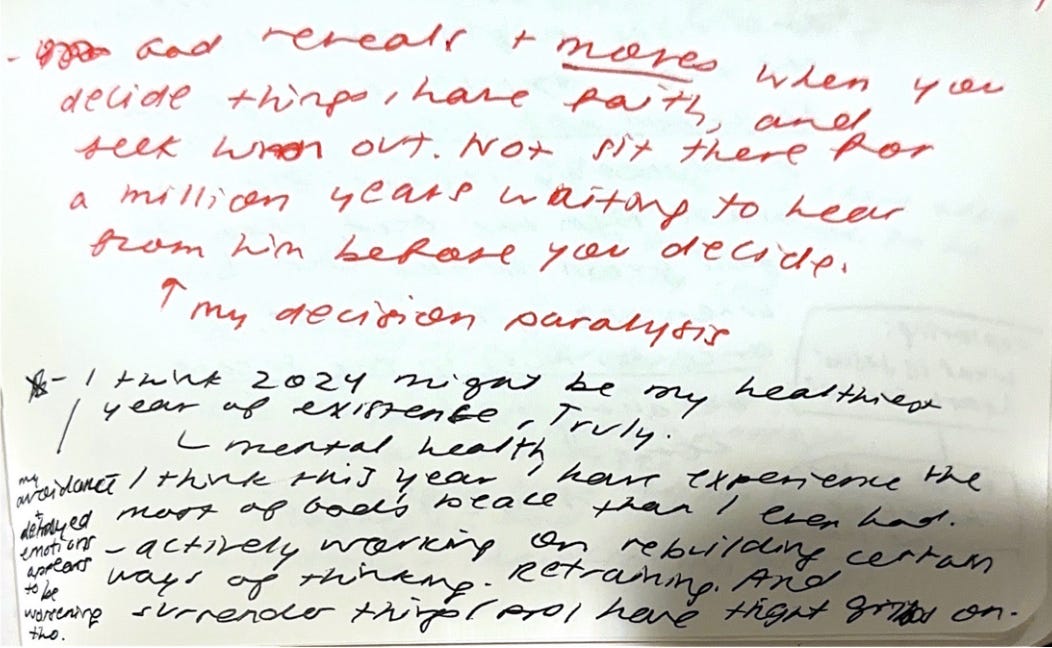 - God reveals + moves when you
decide things, have faith, and
seek out. Not sit there for
a million years waiting to hear
from him before you decide.
↑ my decision paralysis
- I think 2024 might be my healthiest
year of existence, Truly.
mental health
I think this year I have experience the
most of God's peace than I ever had.
- actively working on rebuilding certain
ways of thinking. Retraining. And
surrender things I have tight on.
my
avoidance
+
delayed
emotions
appears
to be
worsening
tho.